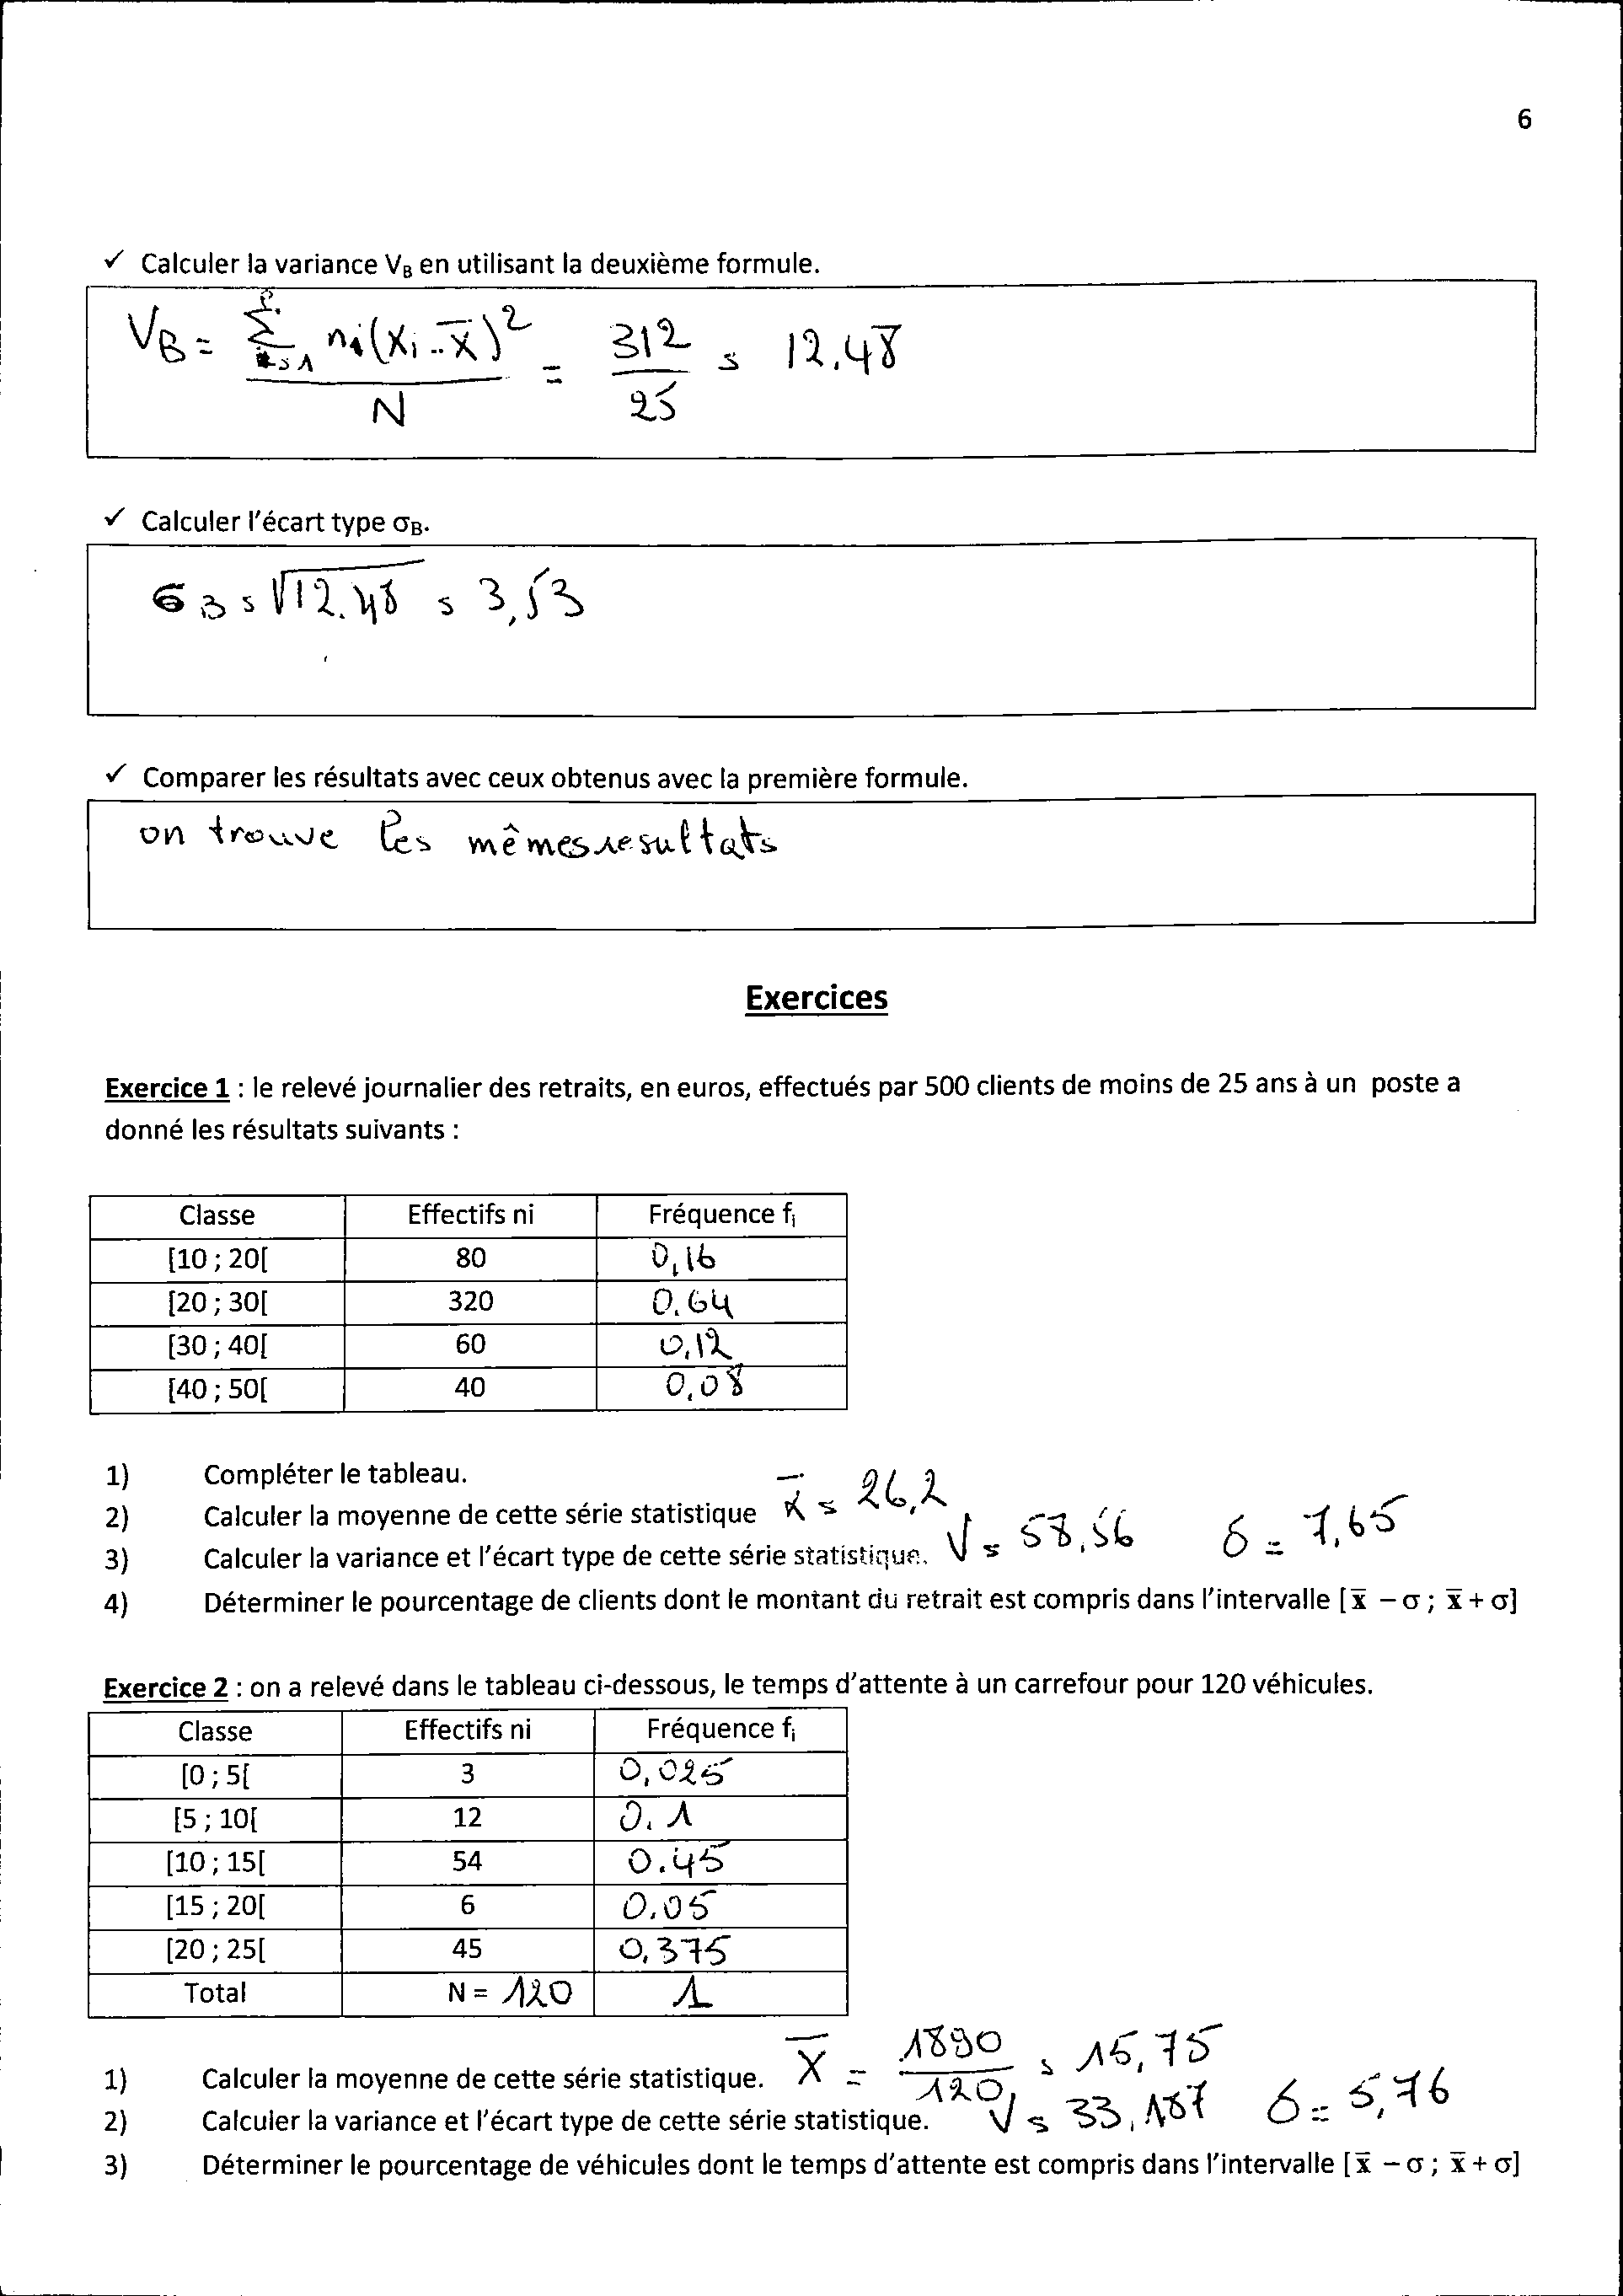 6
✓ Calculer la variance V_B en utilisant la deuxième formule.
V_B = Σ ni(xi - x̄)² / N = 312 / 25 = 12.48
✓ Calculer l'écart type σ_B.
σ_B = √12.48 = 3,53
✓ Comparer les résultats avec ceux obtenus avec la première formule.
on trouve les mêmes resultats
Exercices
Exercice 1 : le relevé journalier des retraits, en euros, effectués par 500 clients de moins de 25 ans à un poste a
donné les résultats suivants :
Classe Effectifs ni Fréquence fi
[10 ; 20[ 80 0,16
[20 ; 30[ 320 0.64
[30 ; 40[ 60 0,12
[40 ; 50[ 40 0,08
1) Compléter le tableau.
2) Calculer la moyenne de cette série statistique x̄ = 26,2
3) Calculer la variance et l'écart type de cette série statistique. V = 58,56 σ = 7,65
4) Déterminer le pourcentage de clients dont le montant du retrait est compris dans l'intervalle [x̄ – σ ; x̄ + σ]
Exercice 2 : on a relevé dans le tableau ci-dessous, le temps d'attente à un carrefour pour 120 véhicules.
Classe Effectifs ni Fréquence fi
[0 ; 5[ 3 0,025
[5 ; 10[ 12 0.1
[10 ; 15[ 54 0.45
[15 ; 20[ 6 0.05
[20 ; 25[ 45 0,375
Total N = 120 1
1) Calculer la moyenne de cette série statistique. X̄ = 1890 / 120 = 15,75
2) Calculer la variance et l'écart type de cette série statistique. V = 33,187 σ = 5,76
3) Déterminer le pourcentage de véhicules dont le temps d'attente est compris dans l'intervalle [x̄ – σ ; x̄ + σ]